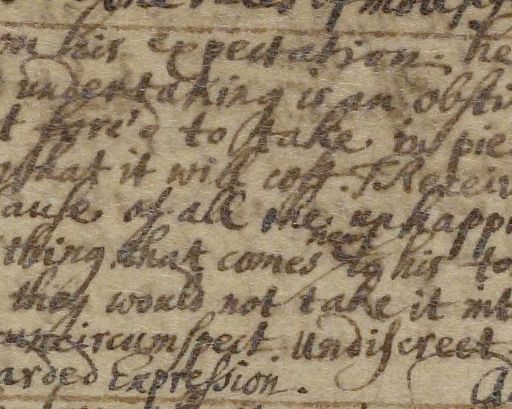 the rules of modesty
his expectation. he
undertaking is an obsti
to take in pie
what it will cost. Receiv
cause of all the unhappi
thing that comes next to his to
they would not take it into
uncircumspect Undiscreet
arded Expression. A